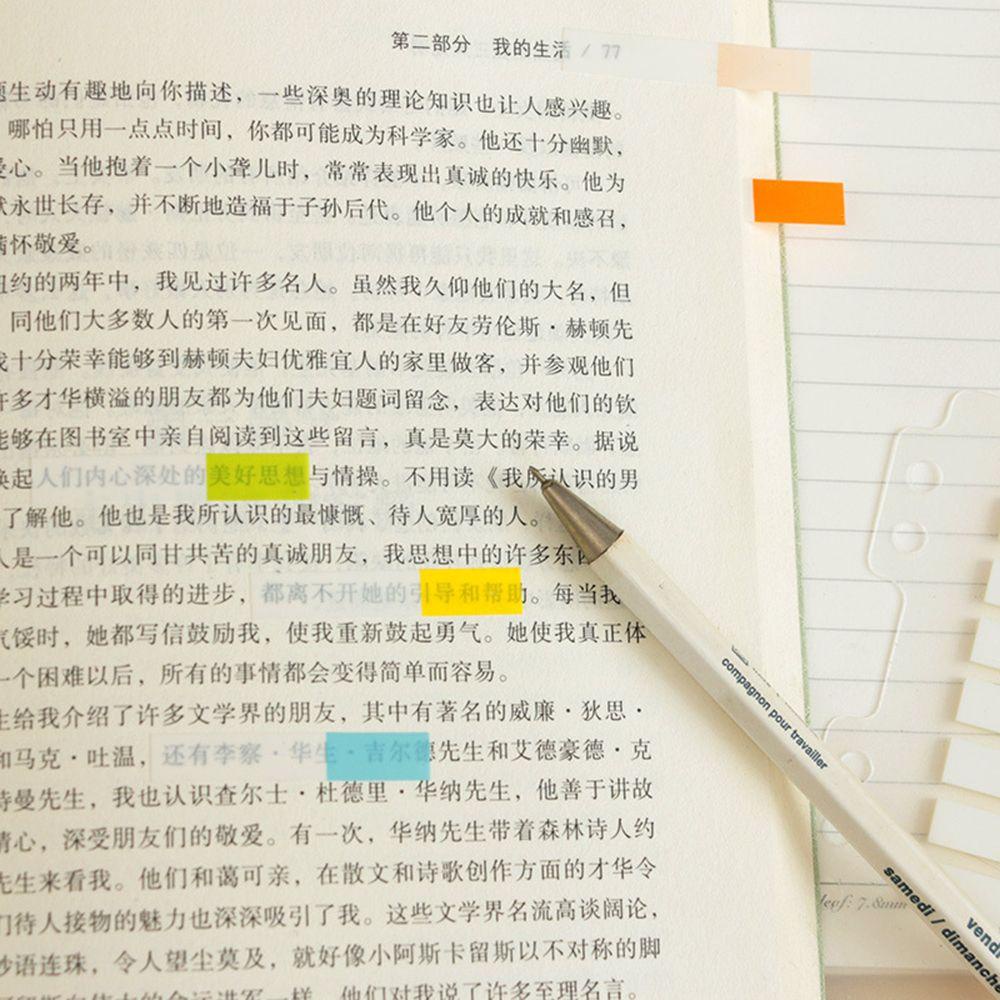 第二部分 我的生活 / 77
生动有趣地向你描述，一些深奥的理论知识也让人感兴趣。
哪怕只用一点点时间，你都可能成为科学家。他还十分幽默，
心。当他抱着一个小聋儿时，常常表现出真诚的快乐。他为
永世长存，并不断地造福于子孙后代。他个人的成就和感召，
怀敬爱。
约的两年中，我见过许多名人。虽然我久仰他们的大名，但
同他们大多数人的第一次见面，都是在好友劳伦斯·赫顿先
十分荣幸能够到赫顿夫妇优雅宜人的家里做客，并参观他们
许多才华横溢的朋友都为他们夫妇题词留念，表达对他们的钦
能够在图书室中亲自阅读到这些留言，真是莫大的荣幸。据说
唤起人们内心深处的美好思想与情操。不用读《我所认识的男
了解他。他也是我所认识的最慷慨、待人宽厚的人。
人是一个可以同甘共苦的真诚朋友，我思想中的许多东
学习过程中取得的进步，都离不开她的引导和帮助。每当我
气馁时，她都写信鼓励我，使我重新鼓起勇气。她使我真正体
一个困难以后，所有的事情都会变得简单而容易。
生给我介绍了许多文学界的朋友，其中有著名的威廉·狄思·
和马克·吐温，还有李察·华生·吉尔德先生和艾德豪德·克
特曼先生，我也认识查尔士·杜德里·华纳先生，他善于讲故
心，深受朋友们的敬爱。有一次，华纳先生带着森林诗人约
先生来看我。他们和蔼可亲，在散文和诗歌创作方面的才华令
们待人接物的魅力也深深吸引了我。这些文学界名流高谈阔论，
妙语连珠，令人望尘莫及，就好像小阿斯卡留斯以不对称的脚
一样，他们对我说了许多至理名言。
compagnon pour travailler
samedi / dimanche
vendr
leaf: 7.8mm